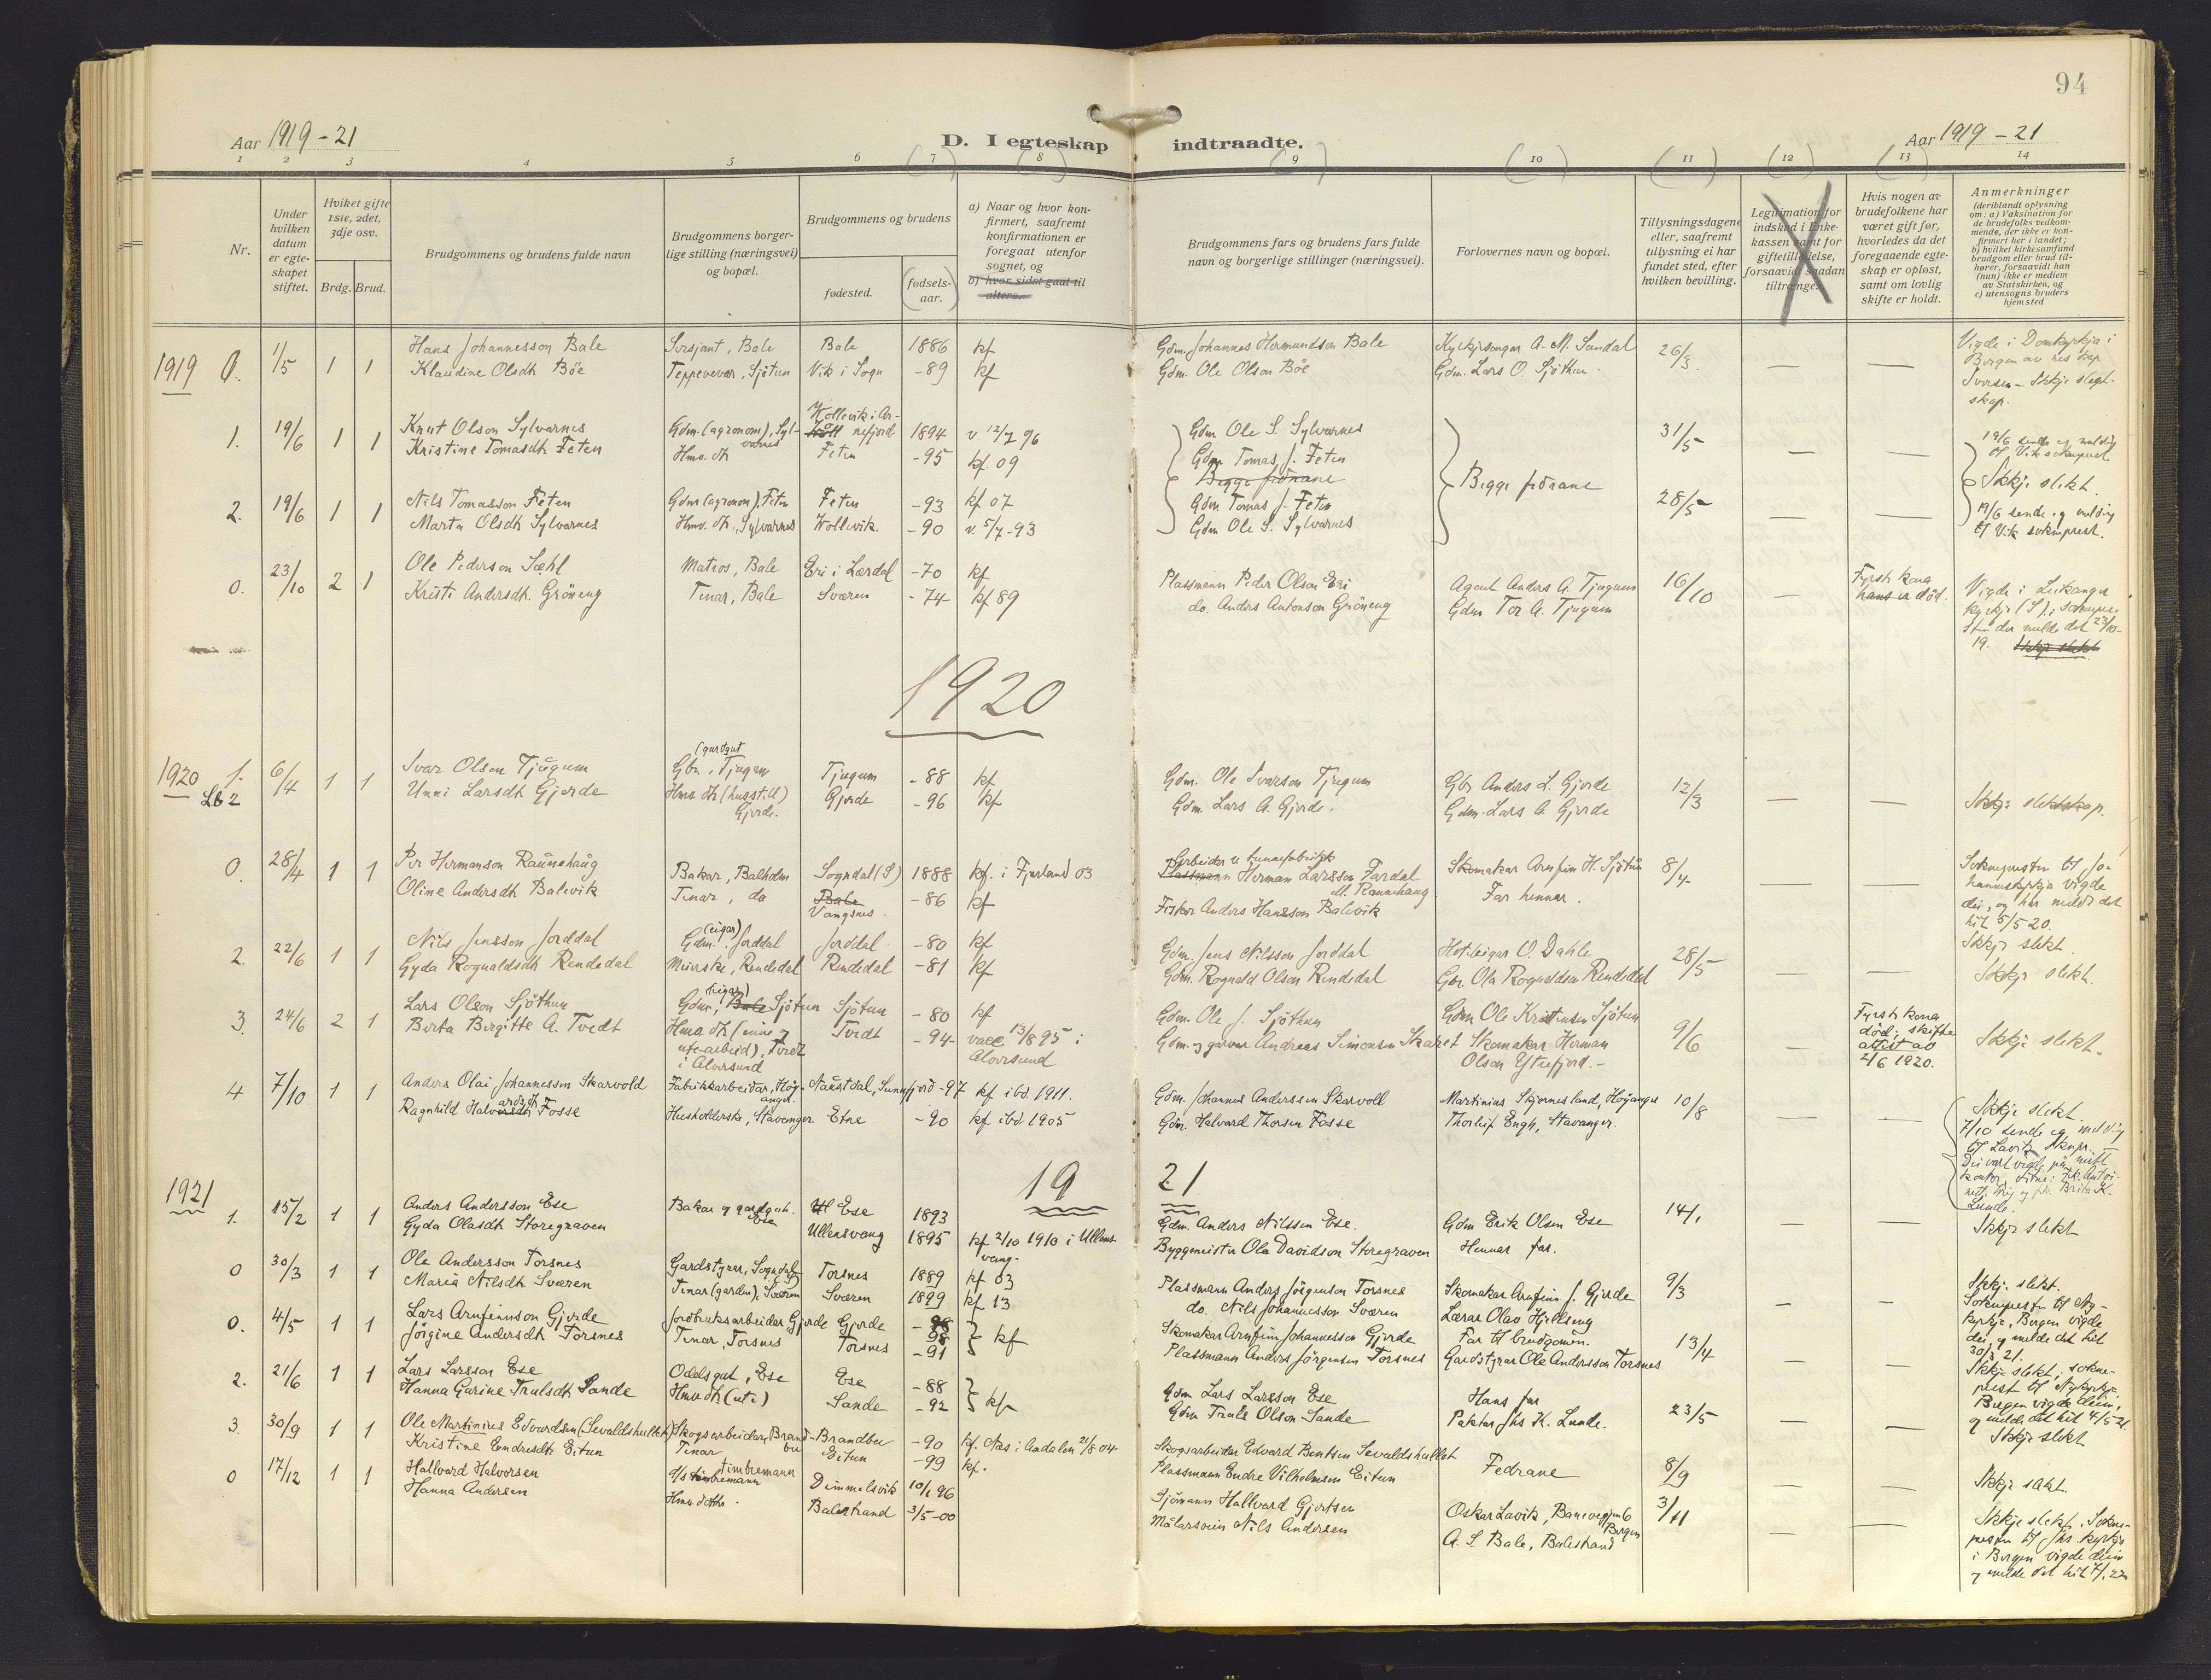 94
Aar 1919 - 21
D. I egteskap indtraadte.
Aar 1919 - 21
1 2 3 4 5 6 (7) (8) (9) (10) (11) (12) (13) 14
Nr.
Under hvilken datum er egteskapet stiftet.
Hviket gifte 1ste, 2det, 3dje osv.
Brdg. Brud.
Brudgommens og brudens fulde navn
Brudgommens borgerlige stilling (næringsvei) og bopæl.
Brudgommens og brudens
fødested.
(fødselsaar.)
a) Naar og hvor konfirmert, saafremt konfirmationen er foregaat utenfor sognet, og
b) hvor sidst gaat til alters.
Brudgommens fars og brudens fars fulde navn og borgerlige stillinger (næringsvei).
Forlovernes navn og bopæl.
Tillysningsdagene eller, saafremt tillysning ei har fundet sted, efter hvilken bevilling.
Legitimation for indskud i Enkekassen samt for giftetilladelse, forsaavidt saadan tiltrænges.
Hvis nogen av brudefolkene har været gift før, hvorledes da det foregaaende egteskap er opløst, samt om lovlig skifte er holdt.
Anmerkninger (deriblandt oplysning om: a) Vaksination for de brudefolks vedkommende, der ikke er konfirmert her i landet; b) hvilket kirkesamfund brudgom eller brud tilhører, forsaavidt han (hun) ikke er medlem av Statskirken, og c) utensogns bruders hjemsted
1919 0. 1/5 1 1 Hans Johannesson Bale Sersjant, Bale Bale 1886 kf Gdm. Johannes Hermundson Bale Kyrkjesongar A. M. Sundal 26/3 — — Vigde i Domkyrkja i
Klaudine Olsdtr Böe Teppevever, Sjötun Vik i Sogn -89 kf Gdm. Ole Olson Böe Gdm. Lars O. Sjöthun. Bergen av res kap
Iversen - Ikkje slegtskap.
1. 19/6 1 1 Knut Olson Sylvarnes Gdm. (agronom), Sylvarnes Wollevik i Arnefjord 1894 v 12/7 96 Gdm Ole S. Sylvarnes Begge fedrane 31/5 — — 19/6 sende eg melding til Vik sokneprest.
Kristine Tomasdtr Feten Hmv. dtr Feten -95 kf. 09 Gdm Tomas J. Feten Ikkje slekt.
Begge fedrane
2. 19/6 1 1 Nils Tomasson Feten Gdm (agronom), Feten Feten -93 kf 07 Gdm Tomas J. Feten 28/5 — — 19/6 sende eg melding
Marta Olsdtr Sylvarnes Hmv. dtr, Sylvarnes Wollevik -90 v. 5/7-93 Gdm Ole S. Sylvarnes til Vik sokneprest.
0. 23/10 2 1 Ole Pederson Sæhl Matros, Bale Eri i Lærdal -70 kf Plassmann Peder Olson Eri Agent Anders A. Tjugum 16/10 — Fyrste kona hans er död. Vigde i Leikanger
Kristi Andersdtr. Gröneng Tenar, Bale Sværen -74 kf 89 do. Anders Antonson Gröneng Gdm Tor A. Tjugum kyrkje (S); soknepre-
sten der melde det 23/10-
19. Ikkje slekt
1920
1920 1. 6/4 1 1 Ivar Olsen Tjugum (gardgut) Gbr, Tjugum Tjugum -88 kf Gdm. Ole Ivarson Tjugum Gbr Anders L. Gjerde 12/3 — — Ikkje slektskap.
Unni Larsdtr Gjerde Hmv dtr (husstell) Gjerde. Gjerde -96 kf Gdm. Lars A. Gjerde. Gdm. Lars A. Gjerde
0. 28/4 1 1 Per Hermanson Raunehaug Bakar, Balholm Sogndal (S) 1888 kf. i Fjærland 03 Plassmann Arbeider v tunnefabrikk Herman Larsson Fardal Skomakar Arnfinn H. Sjötun 8/4 — — Soknepresten til Johanneskyrkja vigde
Oline Andersdtr Balevik Tenar, do Bale Vangsnes. -86 kf Fisker Anders Hansson Balevik Far hennar. dei, og har meldt det hit 5/5 20.
Ikkje slekt.
2. 22/6 1 1 Nils Jensson Jorddal Gdm. (eigar) Jorddal Jorddal -80 kf Gdm. Jens Nilsson Jorddal Hoteleigar O. Dahle 28/5 — — Ikkje slekt.
Gyda Rognaldsdtr Rendedal Rendedal Rendedal -81 kf Gdm. Rognald Olson Rendedal Gbr. Ola Rognaldson Rendedal
3. 24/6 2 1 Lars Olson Sjöthun Gdm, (eigar) Bale Sjötun Sjötun -80 kf Gdm. Ole J. Sjöthun Gdm Ole Kristensen Sjötun 9/6 — Fyrste kona död; skifte attest av 2/6 1920. Ikkje slekt.
Berta Birgitte A. Tvedt Hmv dtr (inne og ute-arbeid), Tvedt i Alversund Tvedt -94 vacc 13/8 95 i Alversund Gdm. og garvar Andreas Simonsen Skaret Skomakar Herman Olson Ytrefjord.-
4 7/10 1 1 Anders Olai Johannessen Skarvold Fabrikkarbeidar, Höyanger Naustdal, Sunnfjord -97 kf ibd. 1911. Gdm. Johannes Anderssen Skarvoll Martinius Skjernesland, Höyanger 10/8 — — Ikkje slekt.
Ragnhild Halvardsdtr Fosse Husholderske, Stavanger Etne -90 kf ibd 1905 Gdm. Halvard Thorsen Fosse Thorleif Engh, Stavanger. 7/10 sende eg melding
til Lavik sknpr.
Lunde.
1921
1921 1. 15/2 1 1 Anders Andersson Ese Bakar og gardgut. Ese Ese 1893 Gdm. Anders Nilssen Ese. Gdm Erik Olsen Ese 14/1 — — Ikkje slekt
Gyda Olasdtr Storegraven Ullensvang 1895 kf 2/10 1910 i Ullensvang. Byggmeister Ola Davidson Storegraven Hennar far.
0 30/3 1 1 Ole Andersson Torsnes Gardstyrar, Sogndal (S) Torsnes 1889 kf 03 Plassmann Anders Jörgenson Torsnes Skomakar Arnfinn J. Gjerde 9/3 — — Ikkje slekt.
Maria Nilsdtr Sværen Tenar (garden), Sværen Sværen 1899 kf 13 do. Nils Johannesson Sværen Lærar Olav Hjellseng Soknepresten til Nykyrkje, Bergen vigde
dei, og melde det hit 30/3 21.
0. 4/5 1 1 Lars Arnfinnson Gjerde Jordbruksarbeidar Gjerde Gjerde -98 kf Skomakar Arnfinn Johannesson Gjerde Far til brudgomen. 13/4 — — Ikkje slekt; sokneprest til Nykyrkje,
Jörgine Andersdtr Torsnes Tenar, Torsnes Torsnes -91 Plassmann Anders Jörgensen Torsnes Gardstyrar Ole Andersson Torsnes Bergen vigde deim, og melde det hit 4/5 21.
2. 21/6 1 1 Lars Larsson Ese Odelsgut, Ese Ese -88 kf Gdm Lars Larsson Ese Hans far 23/5 — — Ikkje slekt
Hanna Gurine Trulsdtr Sande Hmv dtr (ute) Sande -92 Gdm Truls Olson Sande Paktar Jhs K. Lunde.
3. 30/9 1 1 Ole Martinius Edvardsen (Sevaldshullet) Skogsarbeidar, Brandbu Brandbu -90 kf. Nes i Aadalen 21/8 04 Skogsarbeidar Edvard Bentsen Sevaldshullet Fedrane 8/9 — — Ikkje slekt.
Kristine Endresdtr Eitun Tenar Eitun -99 kf. Plassmann Endre Vilhelmsen Eitun
0 17/12 1 1 Hallvard Halvorsen timbremann Dimmelsvik 10/1 96 Sjömann Hallvard Gjertsen Oskar Lavik, Banevegen 6 Bergen 3/11 — — Ikkje slekt. Soknepresten til Jhs. kyrkja
Hanna Andersen Hmv dotter. Balestrand 3/5-00 Målarsvein Nils Andersen A. S Bale, Balestrand i Bergen vigde deim
og melde det hit